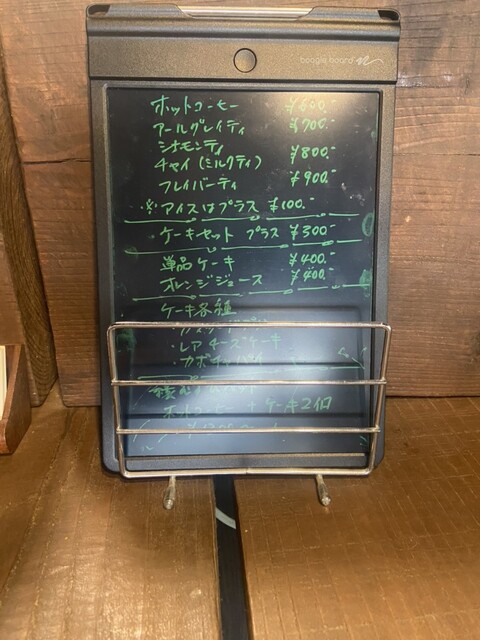 boogie board
ホットコーヒー ¥600.-
アールグレイティ ¥700.-
シナモンティ
チャイ(ミルクティ) ¥800.-
フレイバーティ ¥900.-
※アイスはプラス ¥100.-
ケーキセット プラス ¥300.-
単品ケーキ ¥400.-
オレンジジュース ¥400.-
ケーキ各種
・レアチーズケーキ
・カボチャパイ
ホットコーヒー + ケーキ2個